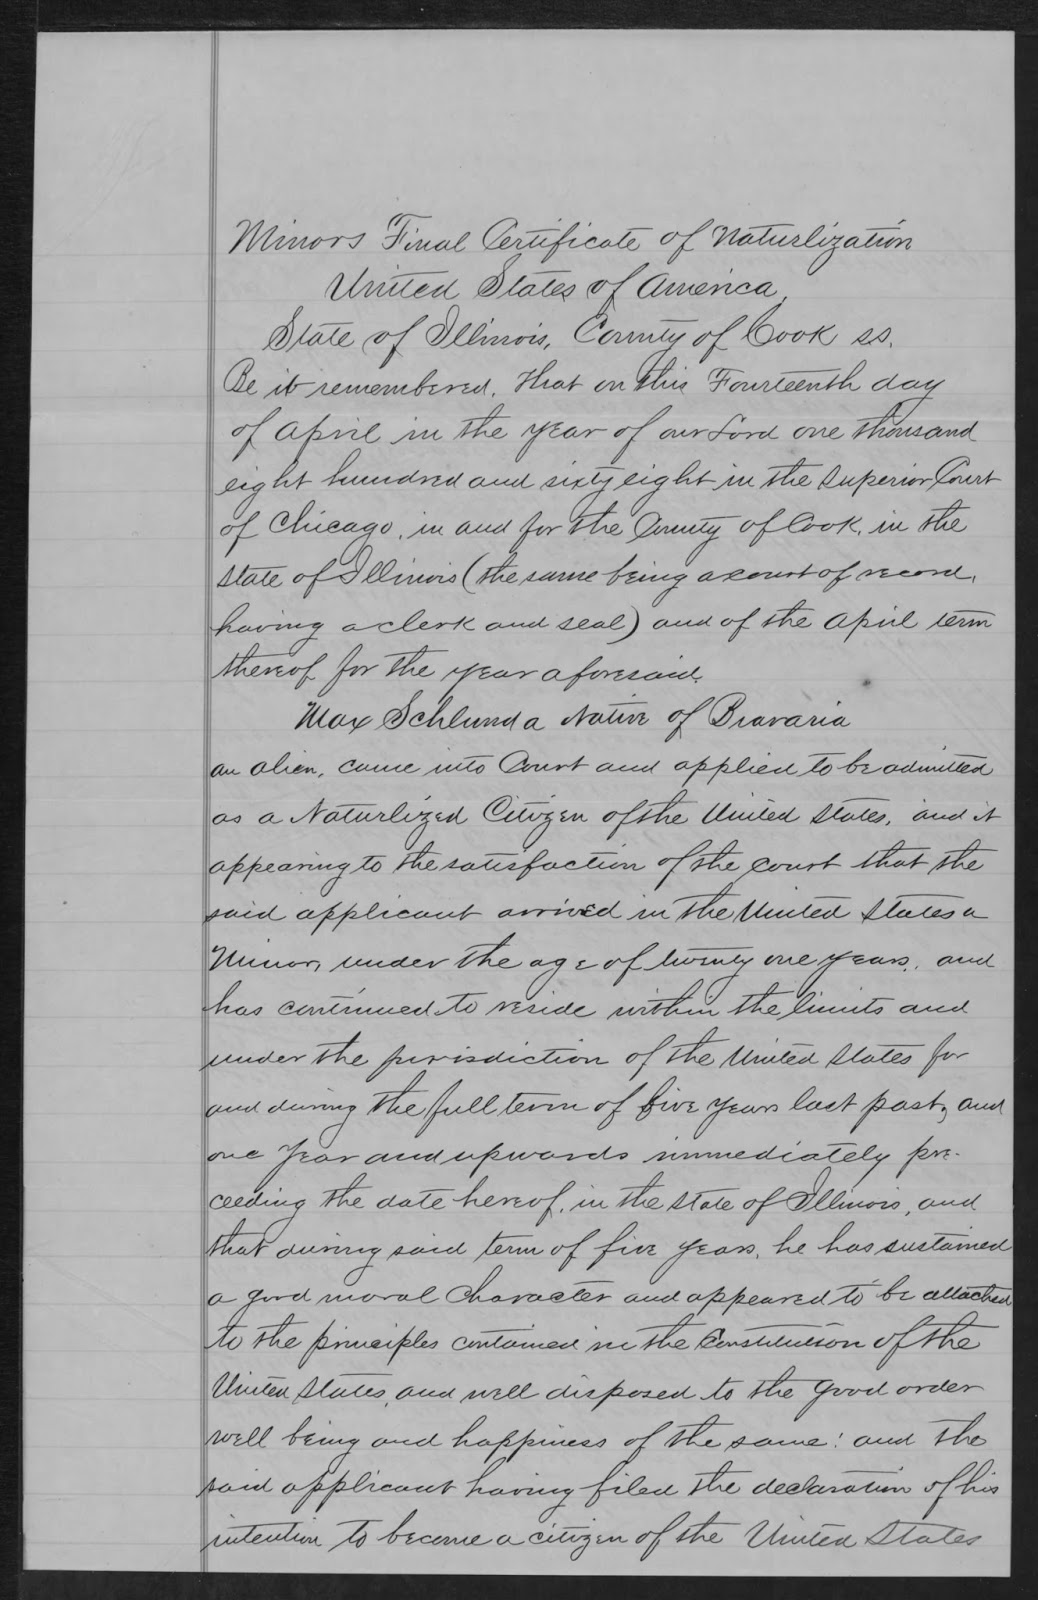 Minors Final Certificate of Naturlization
United States of America,
State of Illinois, County of Cook ss.
Be it remembered, that on this Fourteenth day
of April in the year of our Lord one thousand
eight hundred and sixty eight in the Superior Court
of Chicago, in and for the County of Cook, in the
State of Illinois (the same being a court of record,
having a clerk and seal) and of the April term
thereof for the year aforesaid.
Max Schlund a Native of Bravaria
an alien, came into Court and applied to be admitted
as a Naturlized Citizen of the United States, and it
appearing to the satisfaction of the court that the
said applicant arrived in the United States a
Minor, under the age of twenty one years, and
has continued to reside within the limits and
under the jurisdiction of the United States for
and during the full term of five years last past, and
one Year and upwards immediately pre-
ceeding the date hereof, in the State of Illinois, and
that during said term of five years, he has sustained
a good moral character and appeared to be attached
to the principles contained in the Constitution of the
United States, and well disposed to the good order
well being and happiness of the same: and the
said applicant having filed the declaration of his
intention to become a citizen of the United States